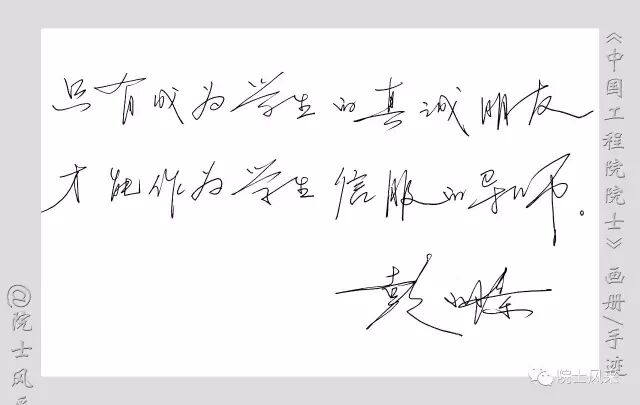 只有成为学生的真诚朋友
才能作为学生信服的导师。
彭
《中国工程院院士》画册/手迹
@院士风采
院士风采